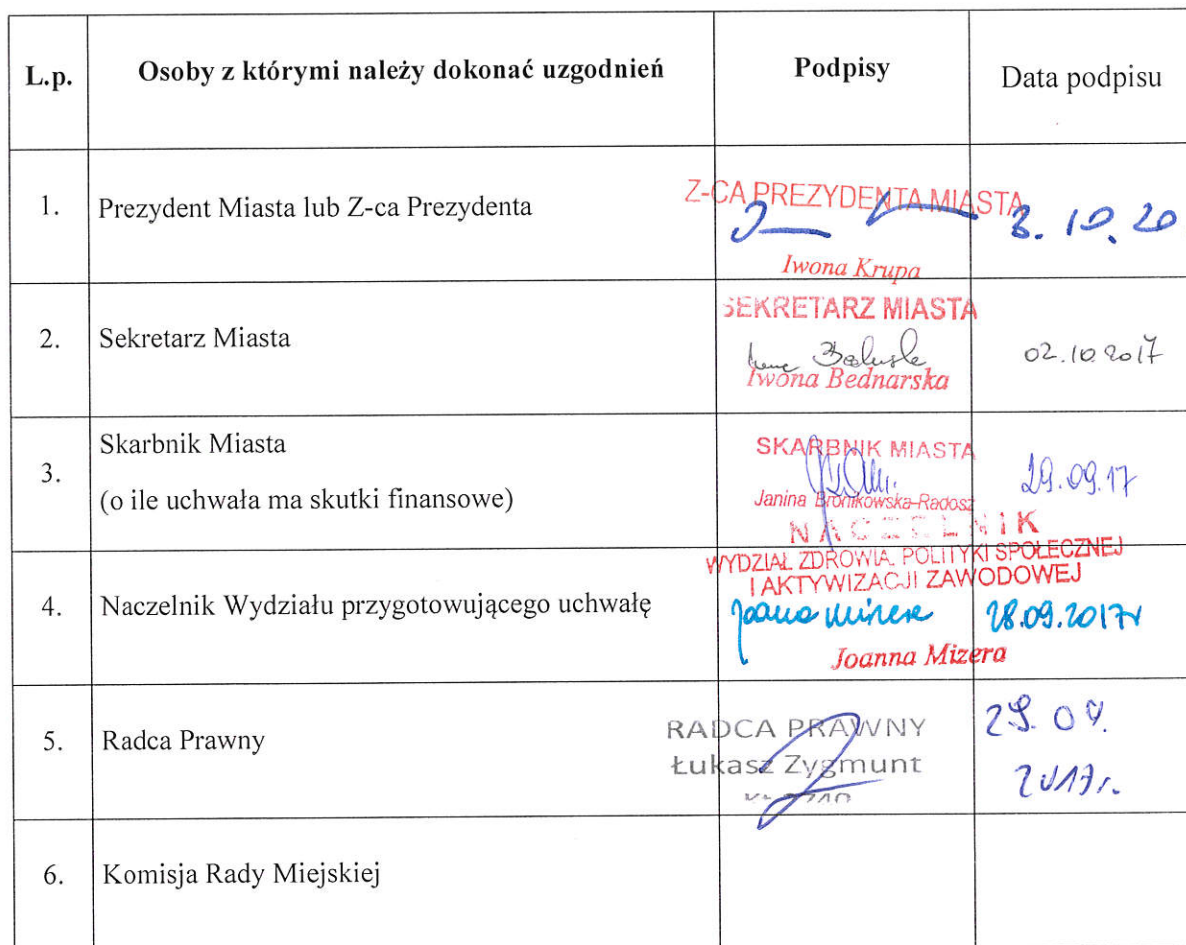 L.p. Osoby z którymi należy dokonać uzgodnień Podpisy Data podpisu
1. Prezydent Miasta lub Z-ca Prezydenta
Z-CA PREZYDENTA MIASTA
3. 10. 20
Iwona Krupa
2. Sekretarz Miasta
SEKRETARZ MIASTA
02.10.2017
Iwona Bednarska
3.
Skarbnik Miasta
(o ile uchwała ma skutki finansowe)
SKARBNIK MIASTA
29.09.17
Janina Bronikowska-Radosz
4. Naczelnik Wydziału przygotowującego uchwałę
NACZELNIK
WYDZIAŁ ZDROWIA, POLITYKI SPOŁECZNEJ
I AKTYWIZACJI ZAWODOWEJ
Joanna Mizera 28.09.2017r
Joanna Mizera
5. Radca Prawny
RADCA PRAWNY
Łukasz Zygmunt
29.09.
2017r.
6. Komisja Rady Miejskiej